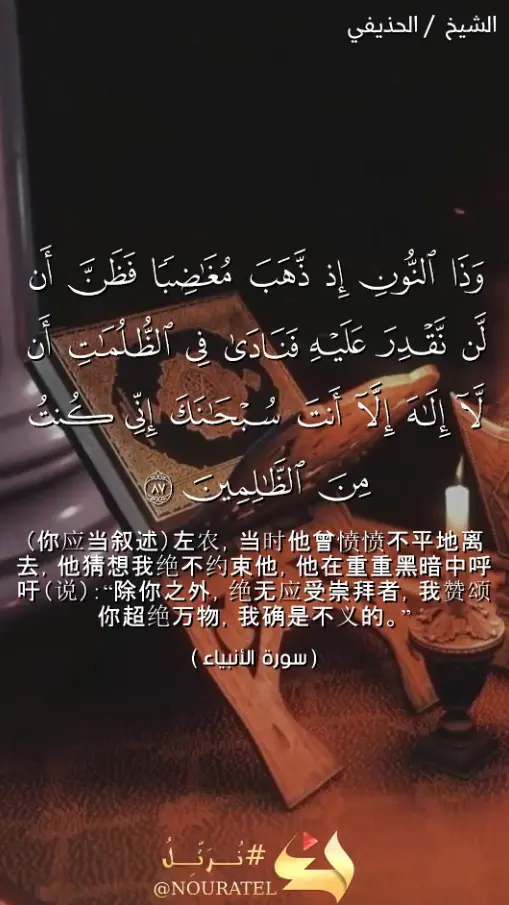 الشيخ / الحذيفي
وَذَا ٱلنُّونِ إِذ ذَّهَبَ مُغَٰضِبٗا فَظَنَّ أَن
لَّن نَّقۡدِرَ عَلَيۡهِ فَنَادَىٰ فِي ٱلظُّلُمَٰتِ أَن
لَّآ إِلَٰهَ إِلَّآ أَنتَ سُبۡحَٰنَكَ إِنِّي كُنتُ
مِنَ ٱلظَّٰلِمِينَ ٨٧
(你应当叙述)左农, 当时他曾愤愤不平地离
去, 他猜想我绝不约束他, 他在重重黑暗中呼
吁(说):“除你之外, 绝无应受崇拜者, 我赞颂
你超绝万物, 我确是不义的。”
(سورة الأنبياء)
#نُرَتِّلُ
@NOURATEL